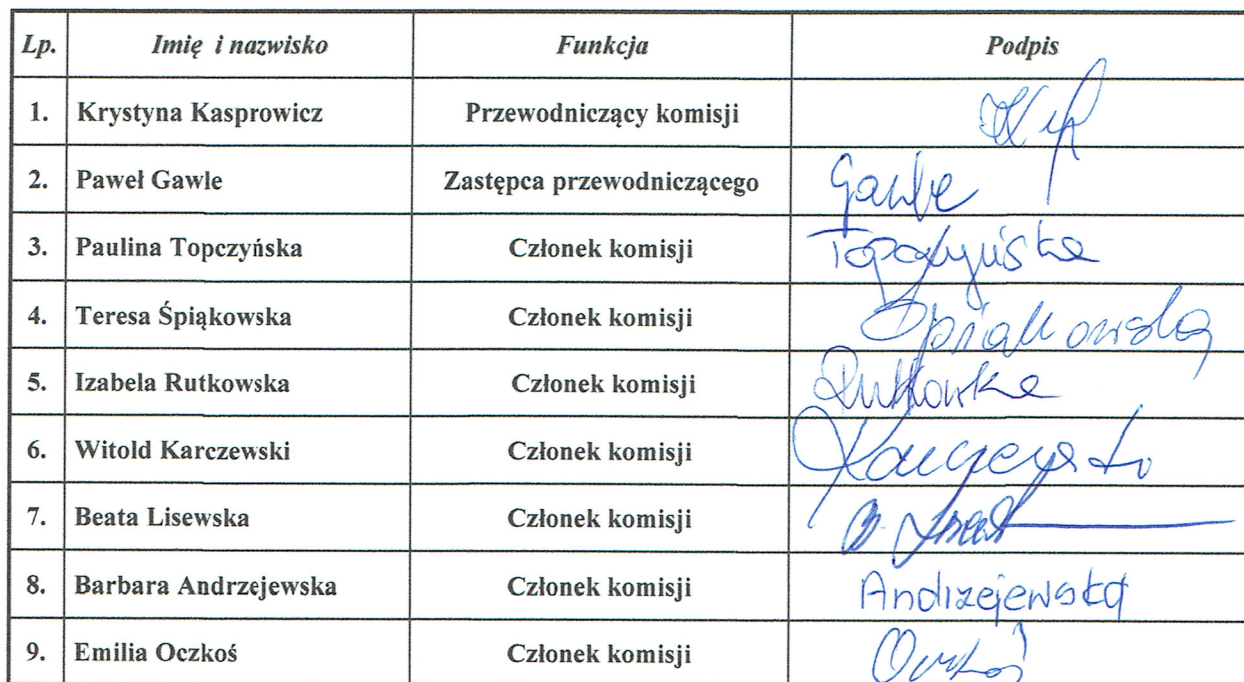 Lp. Imię i nazwisko Funkcja Podpis
1. Krystyna Kasprowicz Przewodniczący komisji
2. Paweł Gawle Zastępca przewodniczącego Gawle
3. Paulina Topczyńska Członek komisji Topczyńska
4. Teresa Śpiąkowska Członek komisji Śpiąkowska
5. Izabela Rutkowska Członek komisji Rutkowska
6. Witold Karczewski Członek komisji
7. Beata Lisewska Członek komisji B.
8. Barbara Andrzejewska Członek komisji Andrzejewska
9. Emilia Oczkoś Członek komisji Oczkoś